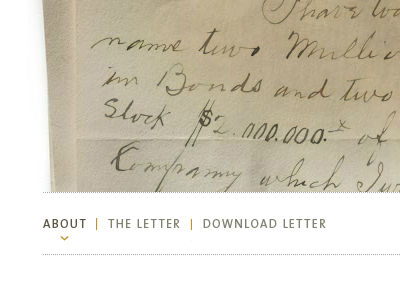 I have to
name two Millio
in Bonds and two
Stock $2.000.000. of
Company which I
ABOUT | THE LETTER | DOWNLOAD LETTER